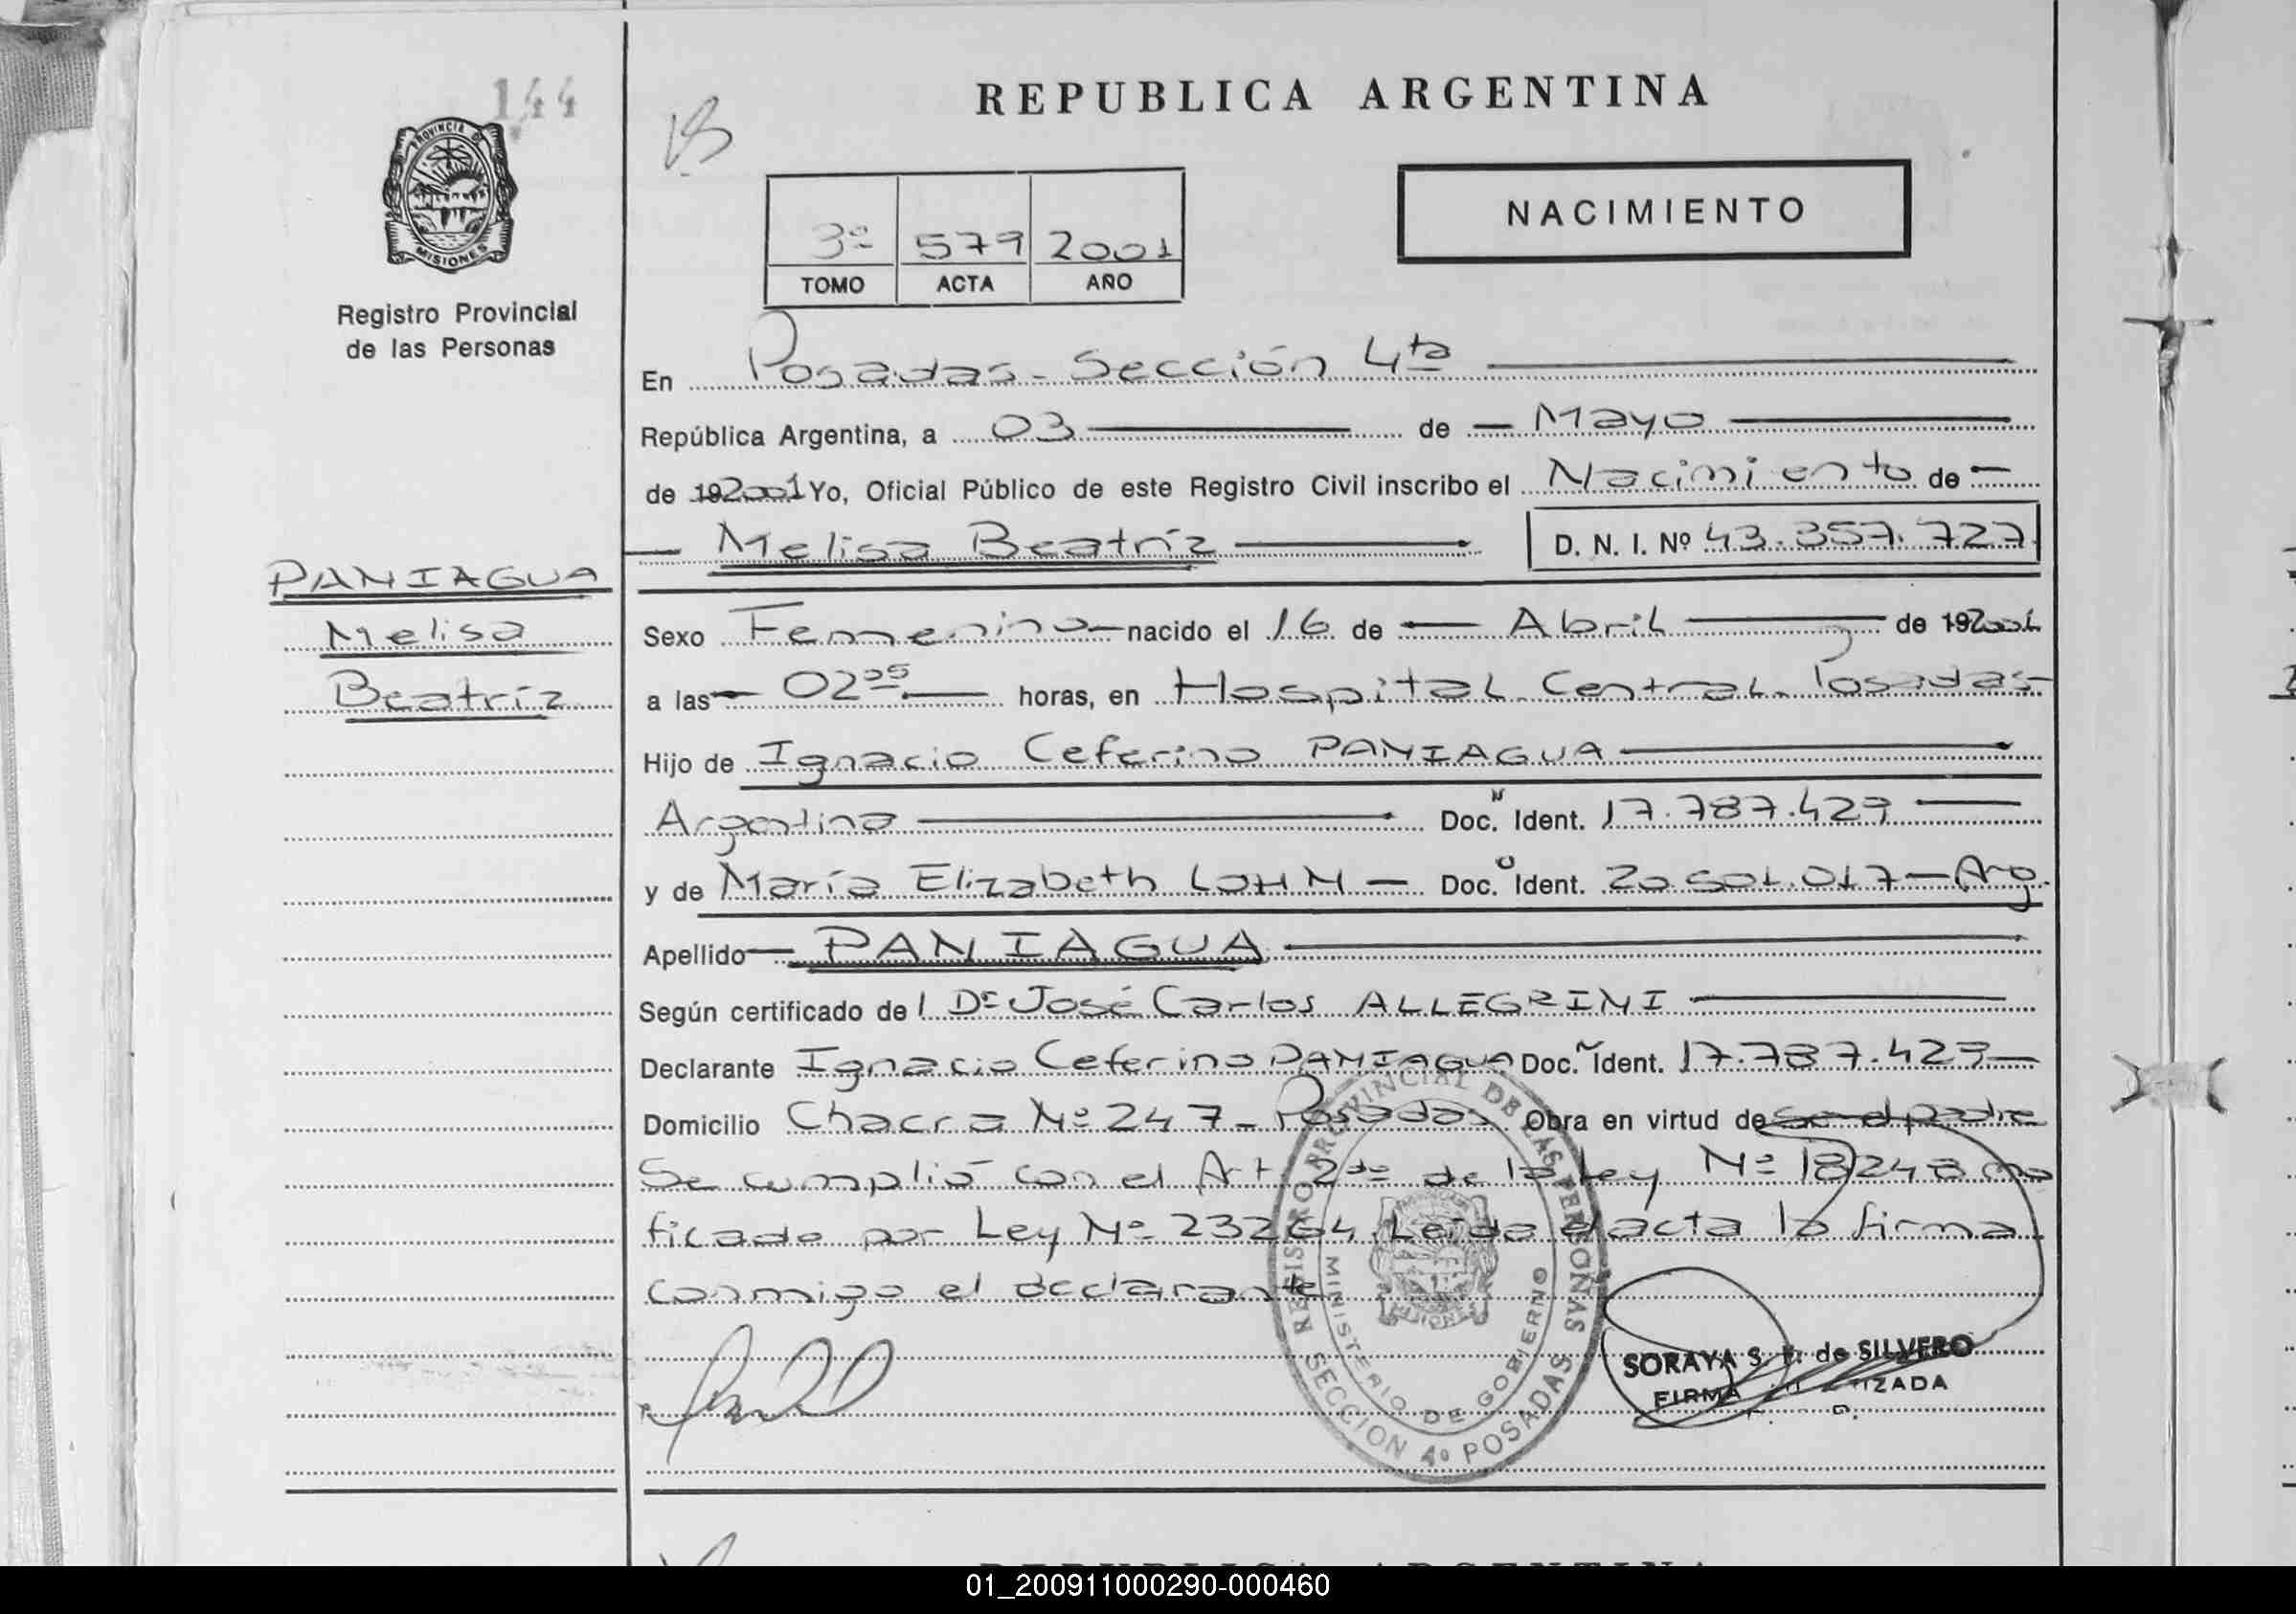 144
REPUBLICA ARGENTINA
PROVINCIA DE
MISIONES
Registro Provincial
de las Personas
3º 579 2001
TOMO ACTA AÑO
NACIMIENTO
En Posadas - Sección 4ta
República Argentina, a 03 de Mayo
de 192001 Yo, Oficial Público de este Registro Civil inscribo el Nacimiento de
Melisa Beatríz D. N. I. Nº 43.357.727
PANIAGUA
Melisa
Beatríz
Sexo Femenino nacido el 16 de Abril de 192001
a las 02 05 horas, en Hospital Central. Posadas-
Hijo de Ignacio Ceferino PANIAGUA
Argentino Doc. N Ident. 17.787.429
y de María Elizabeth LOHN - Doc. U Ident. 20.501.017 - Arg.
Apellido PANIAGUA
Según certificado del Dr José Carlos ALLEGRINI
Declarante Ignacio Ceferino PANIAGUA Doc. N Ident. 17.787.429
Domicilio Chacra Nº 247 - Posadas Obra en virtud de se el padre
Se cumplió con el Art. 2do de la Ley Nº 18248 mo
ficado por Ley Nº 23264. Leída el acta la firma
conmigo el declarante
REGISTRO PROVINCIAL DE LAS PERSONAS
MINISTERIO DE GOBIERNO
SECCION 4º POSADAS
SORAYA S. de SILVERO
FIRMA
01_200911000290-000460